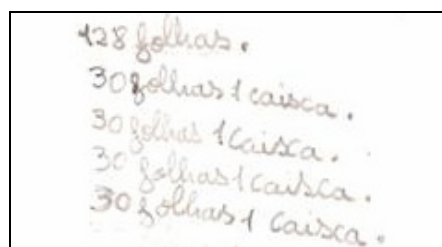 128 folhas.
30 folhas 1 caisca.
30 folhas 1 Caisca.
30 folhas 1 caisca.
30 folhas 1 Caisca.